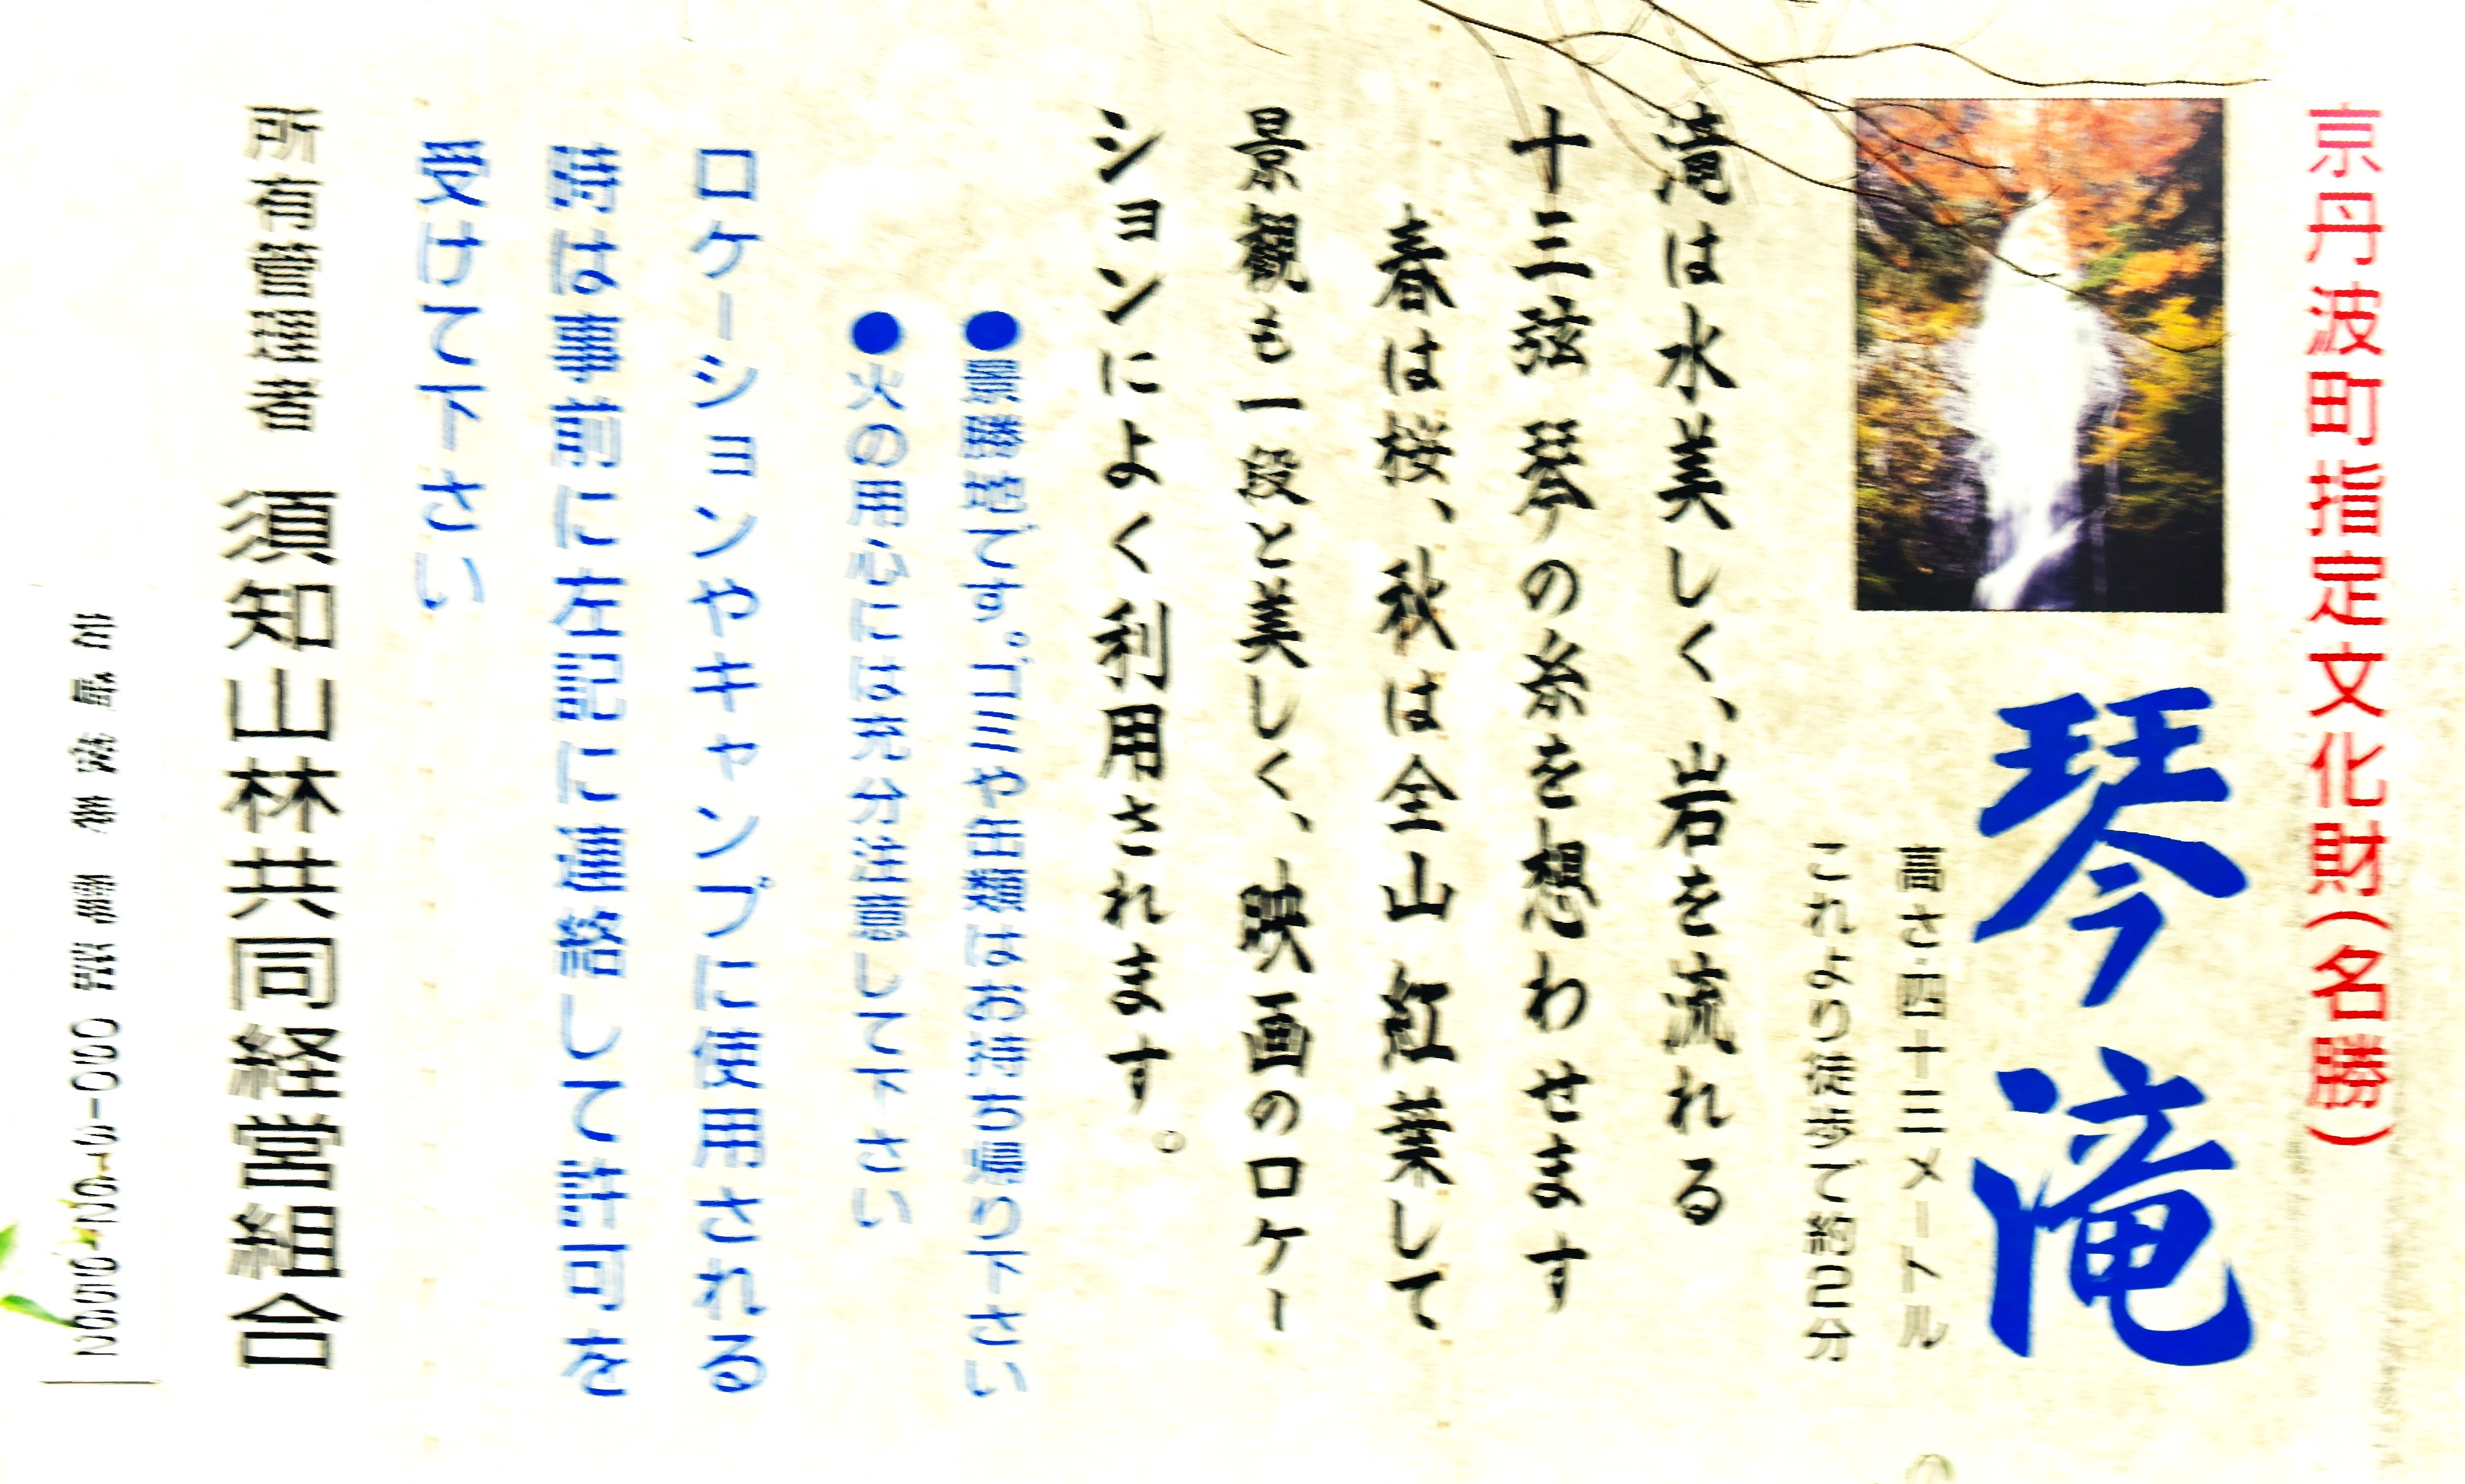 京丹波町指定文化財(名勝)
琴滝
高さ・四十三メートル
これより徒歩で約2分
滝は水美しく、岩を流れる
十三弦琴の糸を想わせます
春は桜、秋は全山紅葉して
景観も一段と美しく、映画のロケー
ションによく利用されます。
●景勝地です。ゴミや缶類はお持ち帰り下さい
●火の用心には充分注意して下さい
ロケーションやキャンプに使用される
時は事前に左記に連絡して許可を
受けて下さい
所有管理者 須知山林共同経営組合